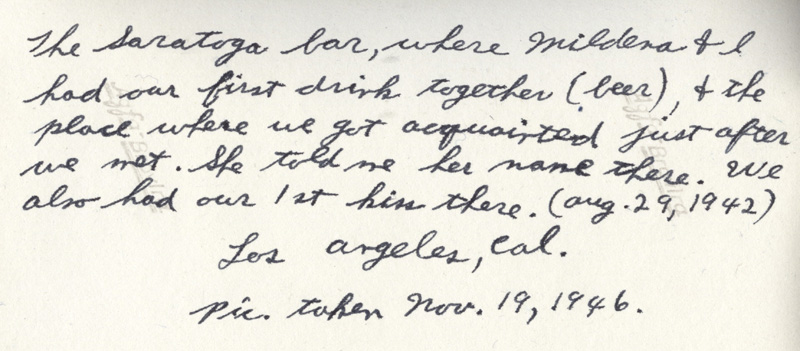 The Saratoga bar, where Mildena & I
had our first drink together (beer), & the
place where we got acquainted just after
we met. She told me her name there. We
also had our 1st kiss there. (Aug. 29, 1942)
Los Angeles, Cal.
Pic. taken Nov. 19, 1946.